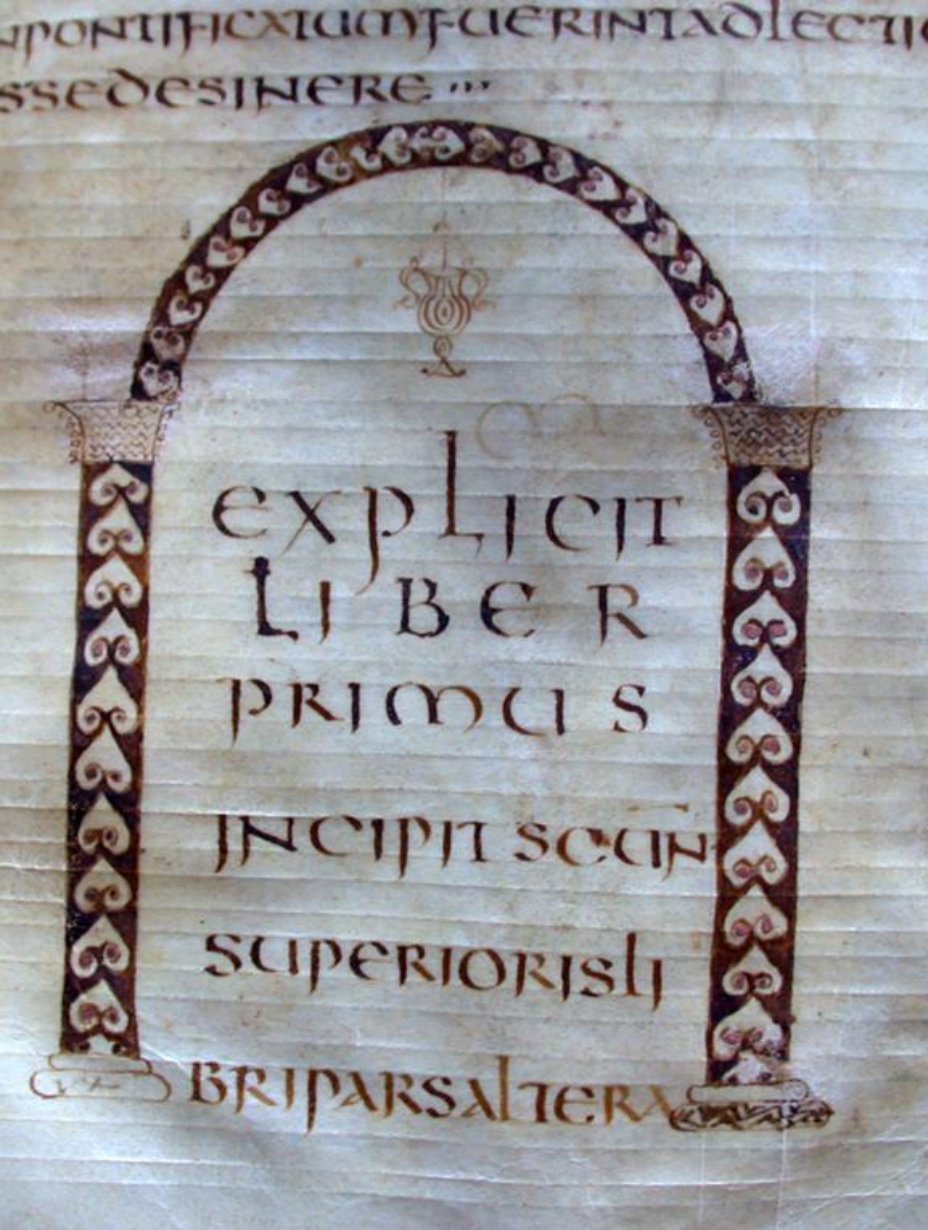 NPONTIFICATUMFUERINTADLECTIO
SSEDESINERE ···
EXPLICIT
LIBER
PRIMUS
INCIPIT SECUN̅
SUPERIORISLI
BRIPARSALTERA